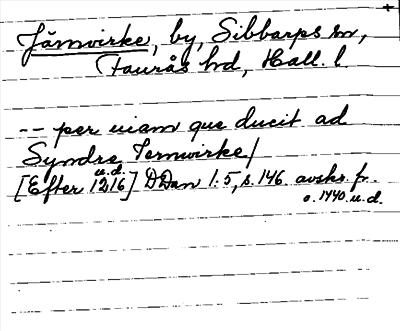 Järnvirke, by, Sibbarps sn,
Faurås hd, Hall. l
-- per uiam que ducit ad
Syndre Iernwirke/
u.d.
[Efter 1216] DDan 1:5, s. 146. avskr. fr.
o. 1440. u.d.